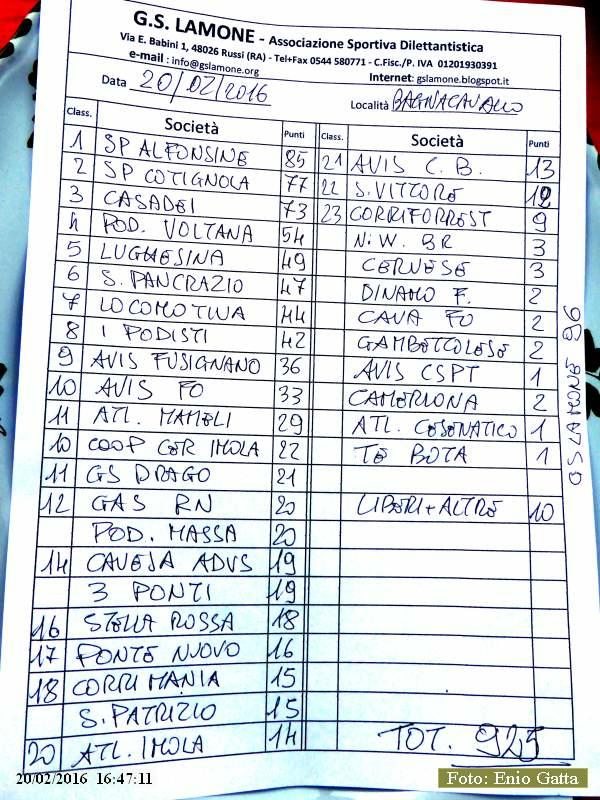 G.S. LAMONE - Associazione Sportiva Dilettantistica
Via E. Babini 1, 48026 Russi (RA) - Tel+Fax 0544 580771 - C.Fisc./P. IVA 01201930391
e-mail : info@gslamone.org Internet: gslamone.blogspot.it
Data 20/02/2016 Località BAGNACAVALLO
Class. Società Punti
1 SP ALFONSINE 85
2 SP COTIGNOLA 77
3 CASADEI 73
4 POD. VOLTANA 54
5 LUGHESINA 49
6 S. PANCRAZIO 47
7 LOCOMOTIVA 44
8 I PODISTI 42
9 AVIS FUSIGNANO 36
10 AVIS FO 33
11 ATL. MAMELI 29
10 COOP CER IMOLA 22
11 GS DRAGO 21
12 GAS RN 20
POD. MASSA 20
14 CAVEJA ADVS 19
3 PONTI 19
16 STELLA ROSSA 18
17 PONTE NUOVO 16
18 CORRI MANIA 15
S. PATRIZIO 15
20 ATL. IMOLA 14
Class. Società Punti
21 AVIS C. B. 13
22 S. VITTORE 12
23 CORRIFORREST 9
N. W. BR 3
CERVESE 3
DINAMO F. 2
CAVA FO 2
GAMBETTOLESE 2
AVIS CSPT 1
CAMERLONA 2
ATL. CESENATICO 1
TE BOTA 1
LIBERI + ALTRE 10
TOT. 925
GS LAMONE 96
20/02/2016 16:47:11
Foto: Enio Gatta